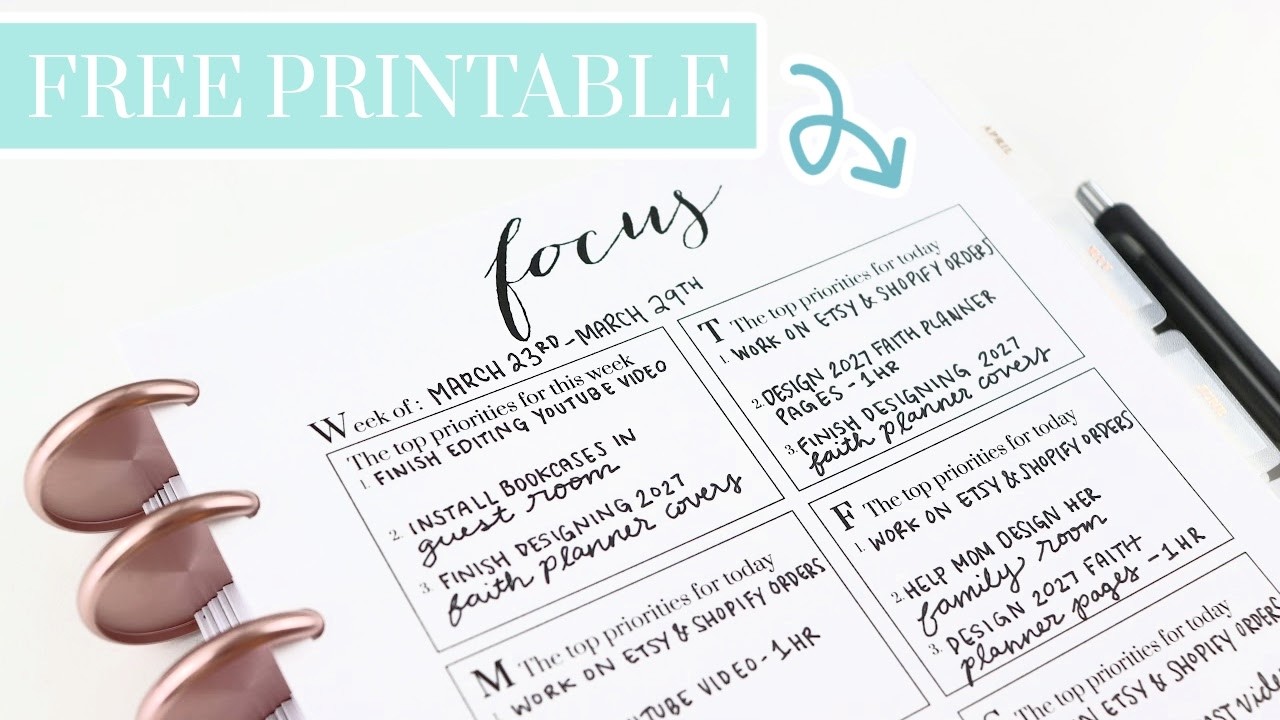 FREE PRINTABLE
APRIL
focus
Week of: MARCH 23RD - MARCH 29TH
The top priorities for this week
1. FINISH EDITING YOUTUBE VIDEO
2. INSTALL BOOKCASES IN
guest room
3. FINISH DESIGNING 2027
faith planner covers
M The top priorities for today
1. WORK ON ETSY & SHOPIFY ORDERS
VIDEO - 1HR
T The top priorities for today
1. WORK ON ETSY & SHOPIFY ORDERS
2. DESIGN 2027 FAITH PLANNER
PAGES - 1HR
3. FINISH DESIGNING 2027
faith planner covers
F The top priorities for today
1. WORK ON ETSY & SHOPIFY ORDERS
2. HELP MOM DESIGN HER
family room
3. DESIGN 2027 FAITH
planner pages - 1HR
The top priorities for today
ON ETSY & SHOPIFY ORDERS